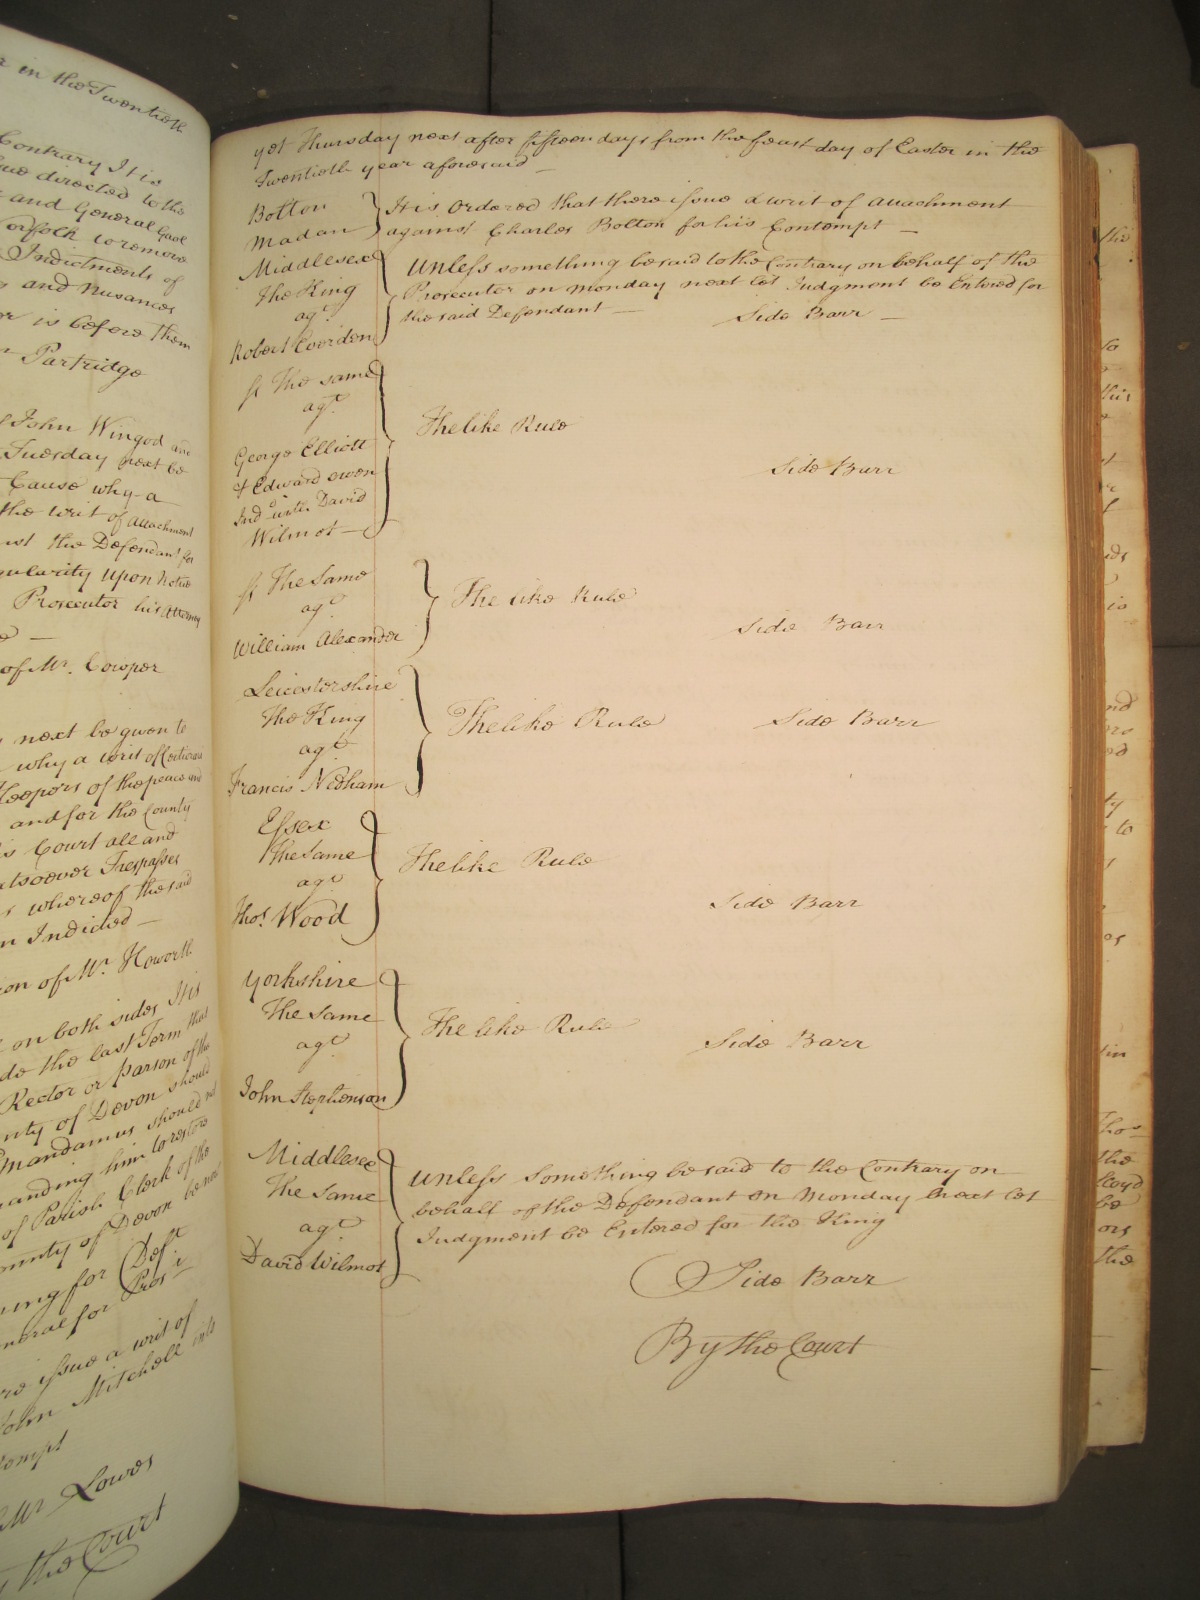 r in the Twentieth
Contrary It is
sue directed to the
and General Gaol
orfolk to remove
Indictments of
and Nusances
or is before them
n Partridge
John Wingod and
Tuesday next be
Cause why a
the writ of attachment
the Defendant for
gularity upon notice
Prosecutor his Attorney
of Mr. Cowper
next be given to
why a writ of Certiorari
Keepers of the peace and
and for the County
is Court all and
atsoever Trespasses
whereof the said
n Indicted —
on of Mr. Howorth
on both sides It is
de the last Term that
Rector or parson of the
nty of Devon should
Mandamus should not
anding him to restore
of Parish Clerk of the
ounty of Devon be
ning for Deft
neral for Pros
re issue a writ of
John Mitchell
ompt
Mr Lowes
the Court
yet Thursday next after fifteen days from the feast day of Easter in the
Twentieth year aforesaid —
Bolton
Madan
It is Ordered that there issue a writ of attachment
against Charles Bolton for his Contempt —
Middlesex
The King
agt
Robert Coordon
Unless something be said to the Contrary on behalf of the
Prosecutor on Monday next let Judgment be Entered for
the said Defendant —
Side Barr —
The same
agt
George Elliott
& Edward Owen
Ind with David
Wilmot —
The like Rule
Side Barr
The Same
agt
William Alexander
The like Rule
Side Barr
Leicestershire
The King
agt
Francis Nedham
The like Rule Side Barr
Essex
The Same
agt
Thos. Wood
The like Rule
Side Barr
Yorkshire
The Same
agt
John Stephenson
The like Rule
Side Barr
Middlesex
The Same
agt
David Wilmot
Unless Something be said to the Contrary on
behalf of the Defendant on Monday next let
Judgment be Entered for the King
Side Barr
By the Court